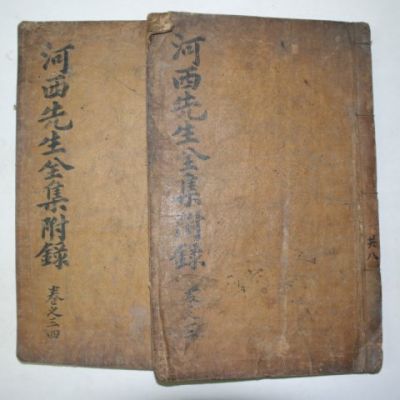 河西先生全集附錄
卷之三四
河西先生全集附錄
卷之
共八